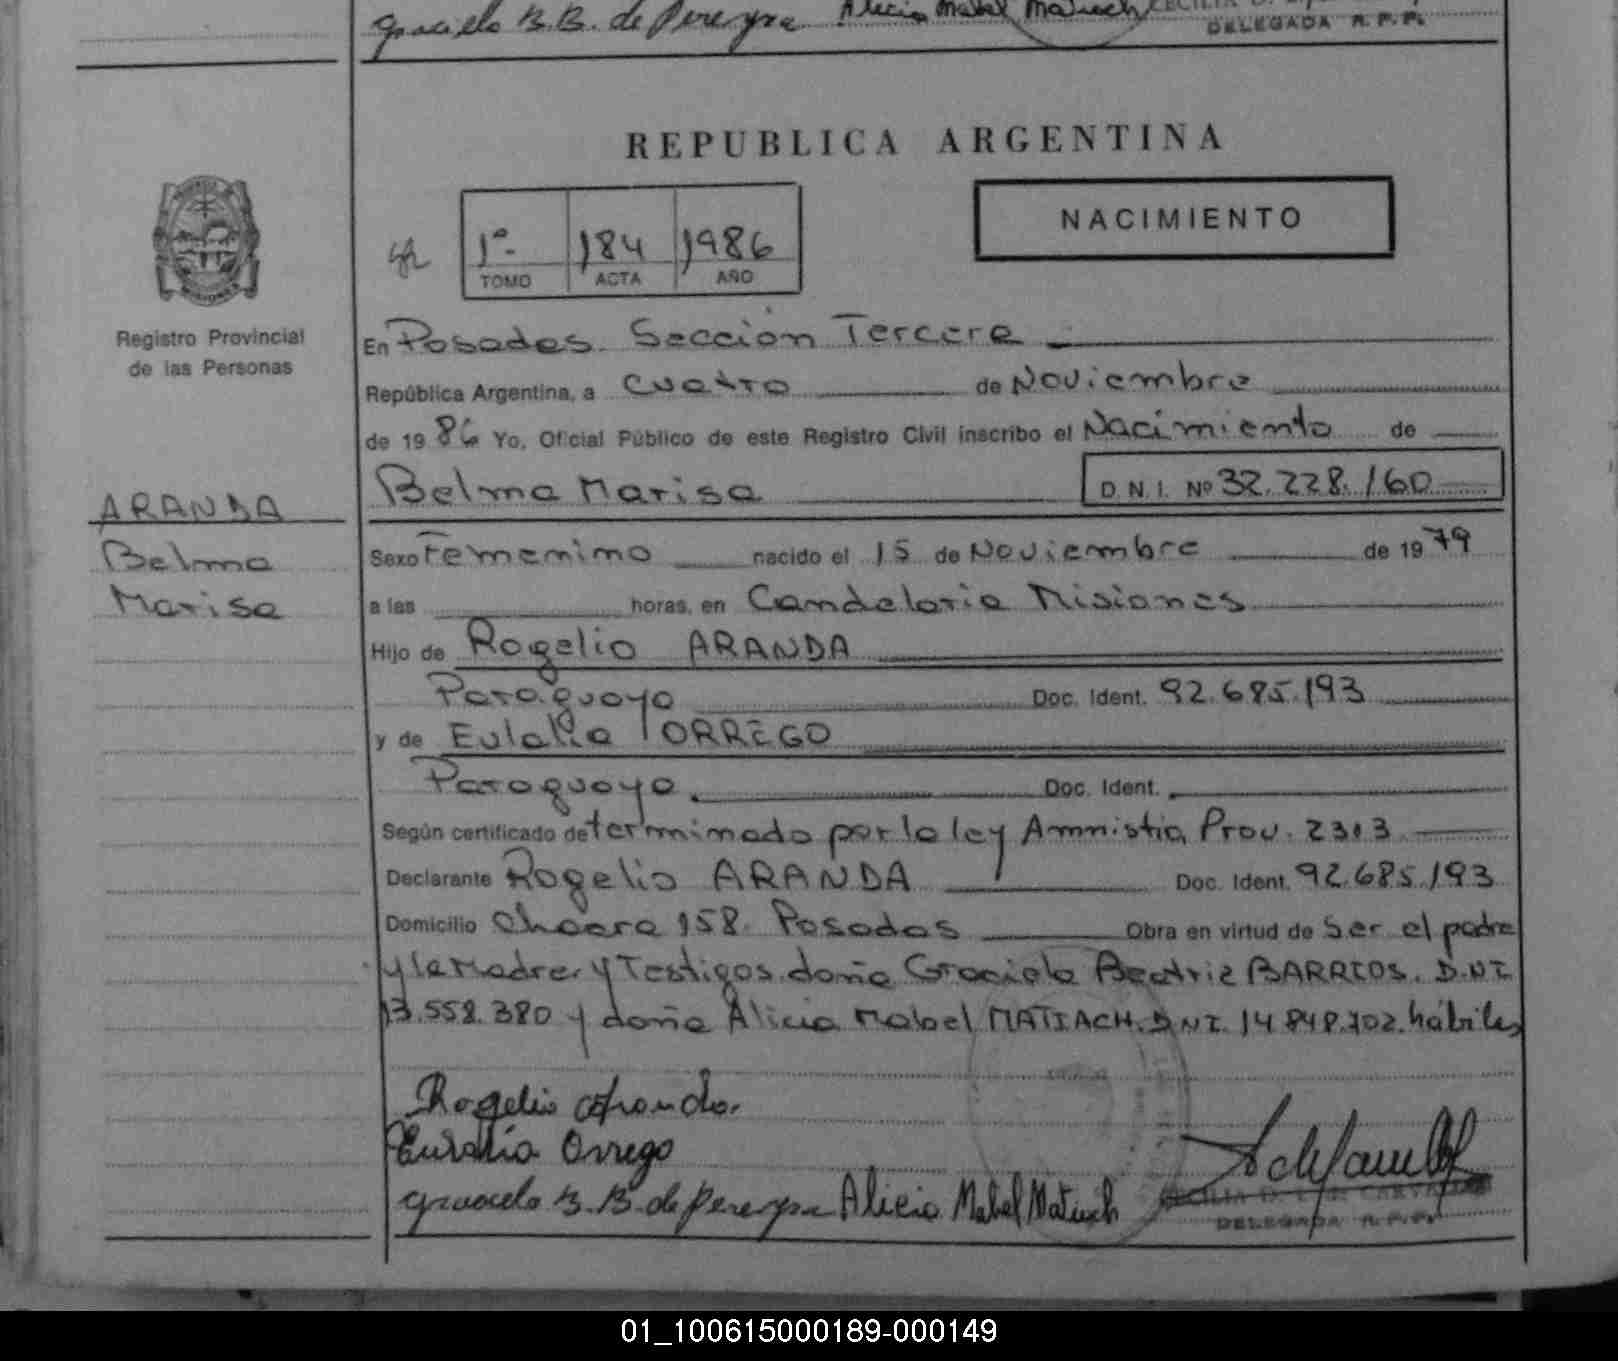 Graciela B.B. de Pereyra Alicia Mabel Matiach CECILIA D.
DELEGADA R.P.P.
REPUBLICA ARGENTINA
NACIMIENTO
1º- 184 1986
TOMO ACTA AÑO
MISIONES
Registro Provincial
de las Personas
En Posadas. Sección Tercera
República Argentina, a cuatro de Noviembre
de 1986 Yo, Oficial Público de este Registro Civil inscribo el Nacimiento de
Belma Marisa D.N.I. Nº 32.228.160
ARANDA
Belma
Marisa
Sexo Femenino nacido el 15 de Noviembre de 1979
a las horas, en Candelaria Misiones
Hijo de Rogelio ARANDA
Paraguayo Doc. Ident. 92.685.193
y de Eulalia ORREGO
Paraguaya Doc. Ident.
Según certificado determinado por la ley Amnistia Prov. 2303
Declarante Rogelio ARANDA Doc. Ident. 92.685.193
Domicilio Chacra 158. Posadas Obra en virtud de Ser el padre
y la Madre. y Testigos. doña Graciela Beatriz BARRIOS. D.N.I.
13.558.380 y doña Alicia Mabel MATIACH. D.N.I. 14.848.702. hábiles
Rogelio Aranda.
Euralia Orrego
Graciela B.B. de Pereyra Alicia Mabel Matiach
DELEGADA R.P.P.
01_100615000189-000149